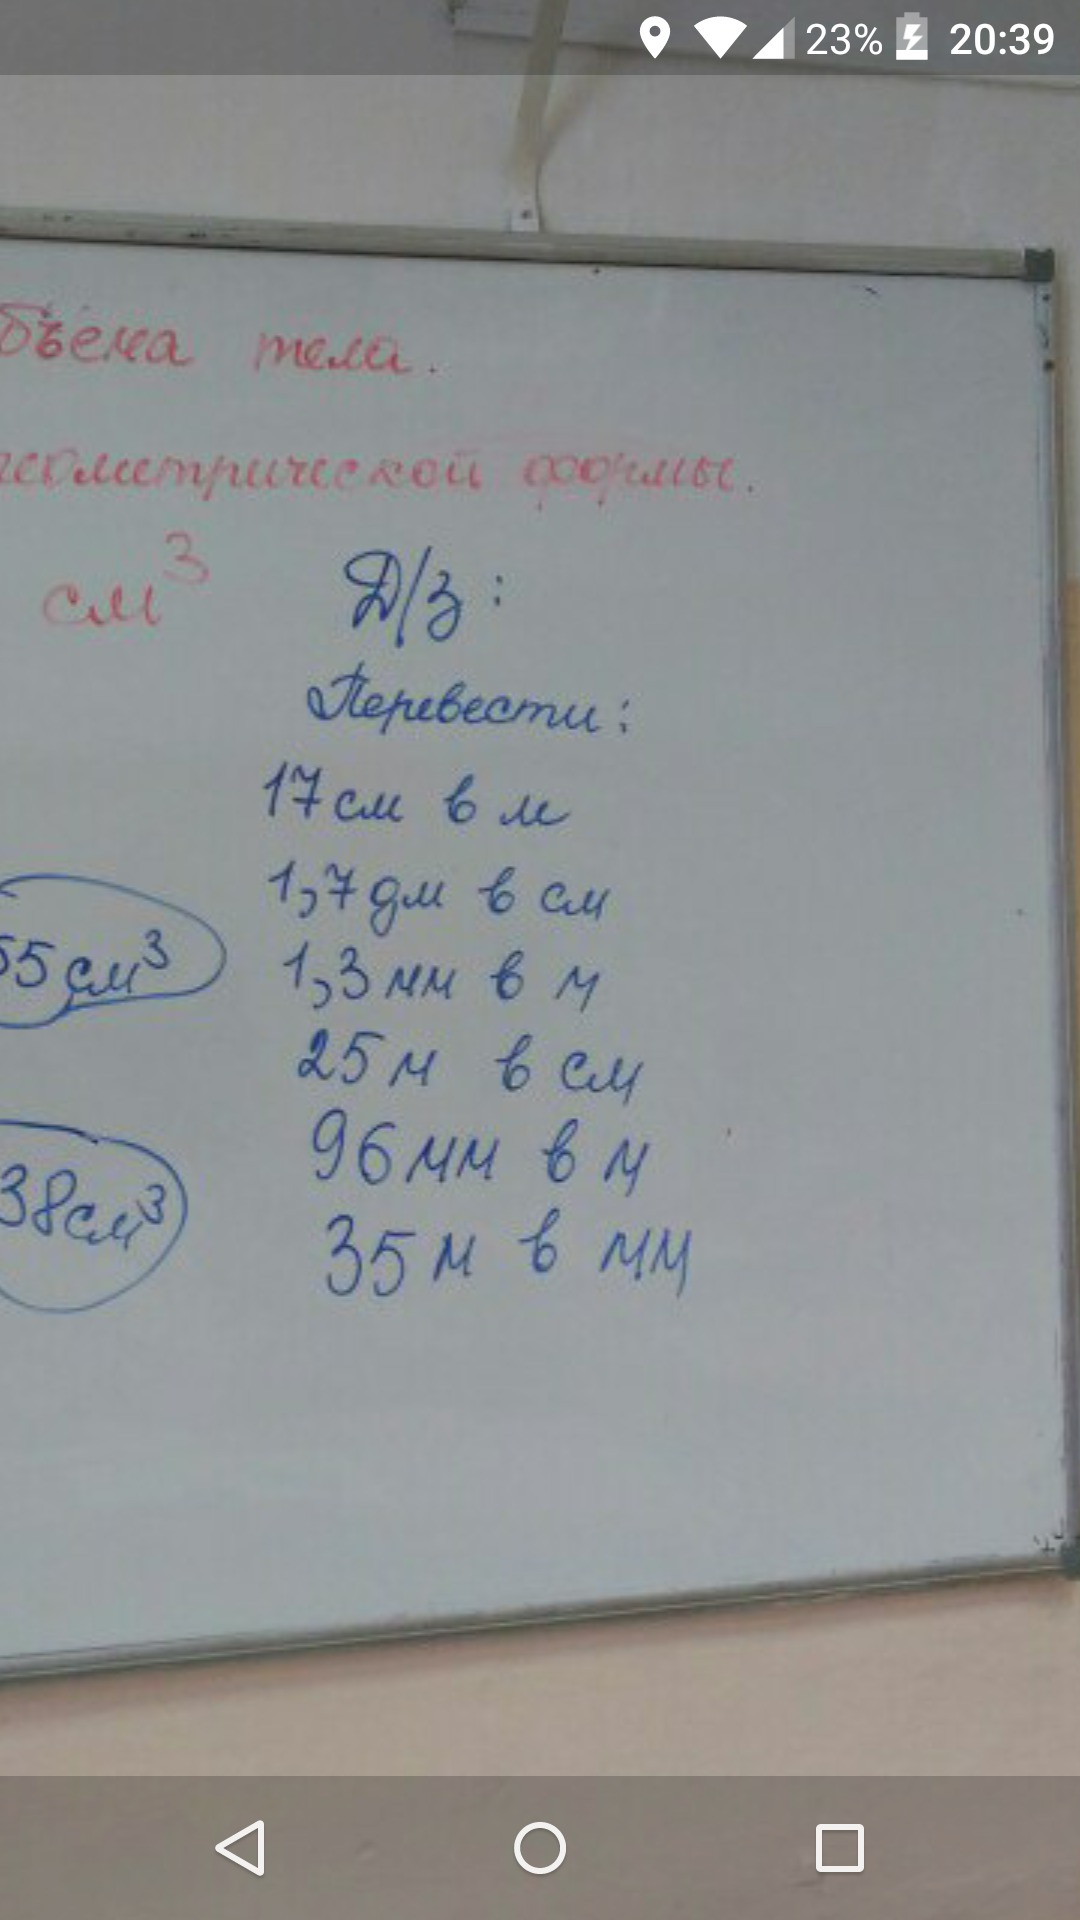 23% 20:39
бъёма тела.
геометрической формы.
см³
Д/з:
Перевести:
17 см в м
1,7 дм в см
55 см³
1,3 мм в м
25 м в см
96 мм в м
38 см³
35 м в мм